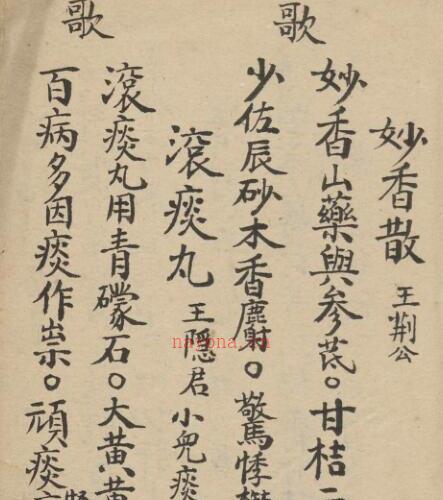 妙香散 王荊公
歌
妙香山藥與參芪。甘桔二
少佐辰砂木香麝。驚悸
滾痰丸 王隱君 小兒痰
歌
滾痰丸用青礞石。大黃黃
百病多因痰作祟。頑痰